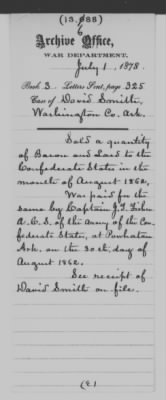 (13,688)
6
Archive Office,
WAR DEPARTMENT,
July 1, 1878.
Book 3 Letters Sent, page 325
Case of David Smith,
Washington Co. Ark.
Sold a quantity
of Bacon and Lard to the
Confederate States in the
month of August 1862,
Was paid for the
same by Captain J. F.
A. C. S. of the Army of the Con-
federate States, at Powhatan
Ark. on the 30th, day of
August 1862.
See receipt of
David Smith on file.